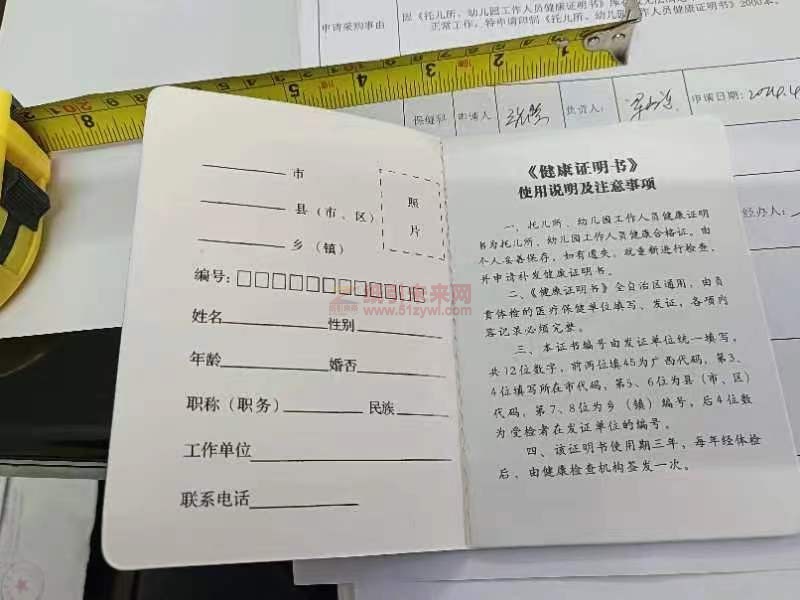 申请采购事由
正常工作，特申请印制《托儿所、幼儿园工作人员健康证明书》2000本。
保健科 申请人 负责人： 申请日期：2024.4
经办人：
8 5 4 3 2 1
市
县（市、区）
乡（镇）
照
片
编号：□□□□□□□□□□□□
姓名 性别
年龄 婚否
职称（职务） 民族
工作单位
联系电话
《健康证明书》
使用说明及注意事项
一、托儿所、幼儿园工作人员健康证明
书为托儿所、幼儿园工作人员健康合格证。由
个人妥善保存，如有遗失，就重新进行检查，
并申请补发健康证明书。
二、《健康证明书》全自治区通用，由负
责体检的医疗保健单位填写、发证，各项内
容记录必须完整。
三、本证书编号由发证单位统一填写，
共12位数字，前两位填45为广西代码，第3、
4位填写所在市代码，第5、6位为县（市、区）
代码，第7、8位为乡（镇）编号，后4位数
为受检者在发证单位的编号。
四、该证明书使用期三年，每年经体检
后，由健康检查机构签发一次。
www.51zywl.com